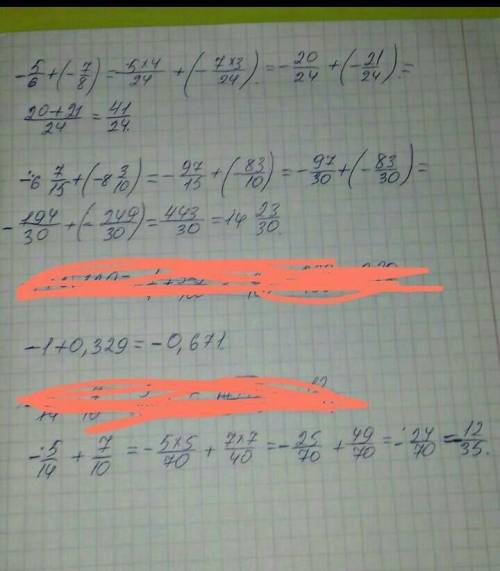 -5/6 + (-7/8) = -5×4/24 + (-7×3/24) = -20/24 + (-21/24) =
20+21/24 = 41/24.
-6 7/15 + (-8 3/10) = -97/15 + (-83/10) = -97/30 + (-83/30) =
-194/30 + (-249/30) = 443/30 = 14 23/30.
-1+0,329 = -0,671.
-5/14 + 7/10 = -5×5/70 + 7×7/40 = -25/70 + 49/70 = -24/70 = -12/35.